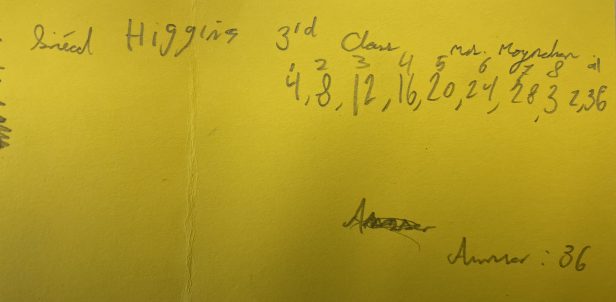 Higgins 3rd Class Mr. Moynihan
1 2 3 4 5 6 7 8 9
4, 8, 12, 16, 20, 24, 28, 32, 36
Answer : 36